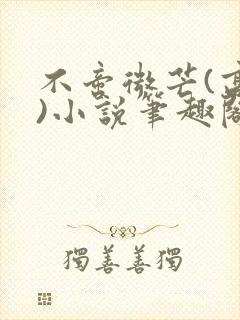 不啻微芒(高
)小說筆趣閣
獨善善獨